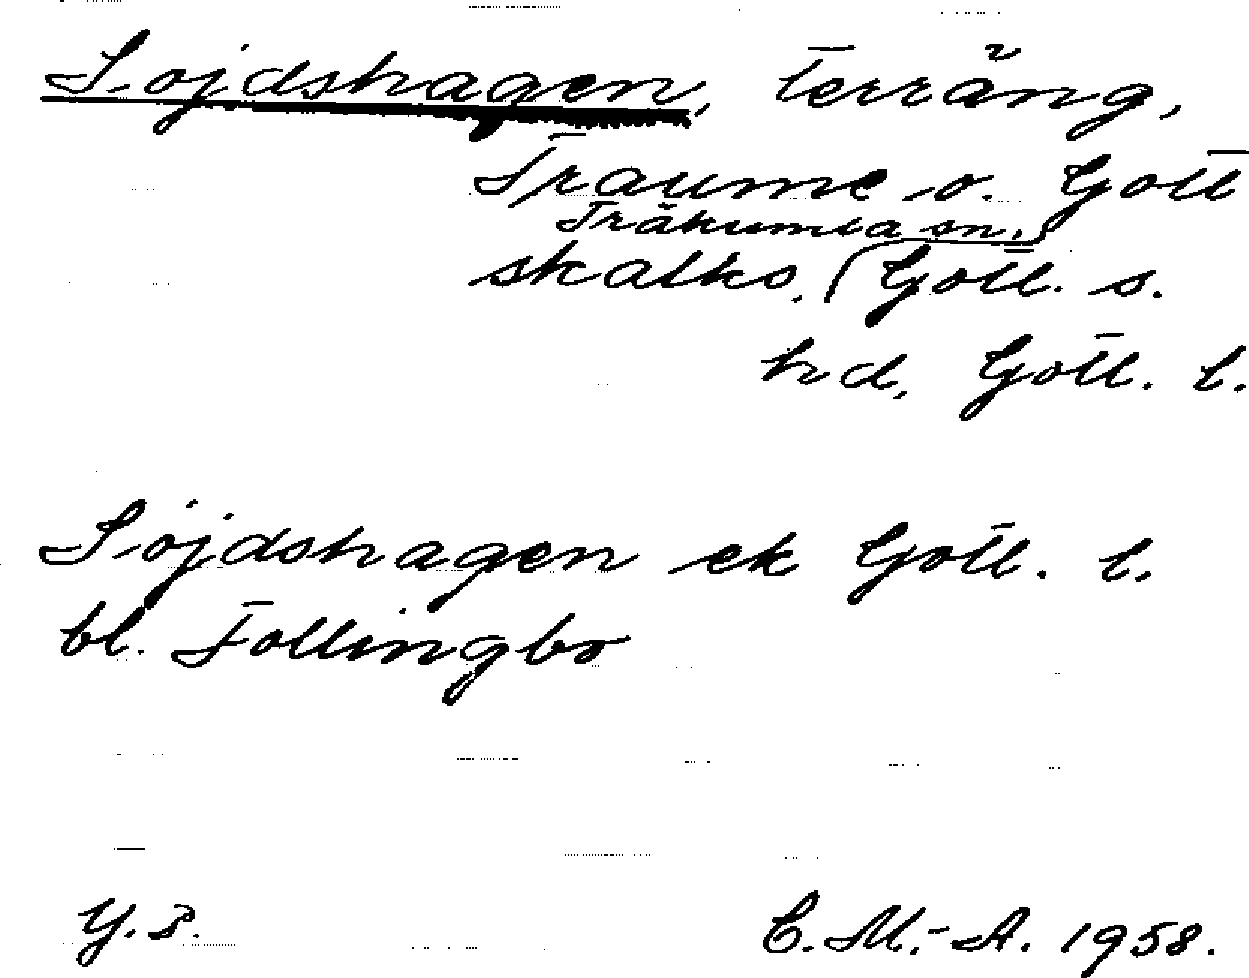 Söjdshagen, terräng,
Traume o. Gotl
Träkumla sn,
skatko, Gotl. s.
hd, Gotl. l.
Söjdshagen ek Gotl. l.
bl. Follingbo
Y. s.
C. M.-A. 1958.